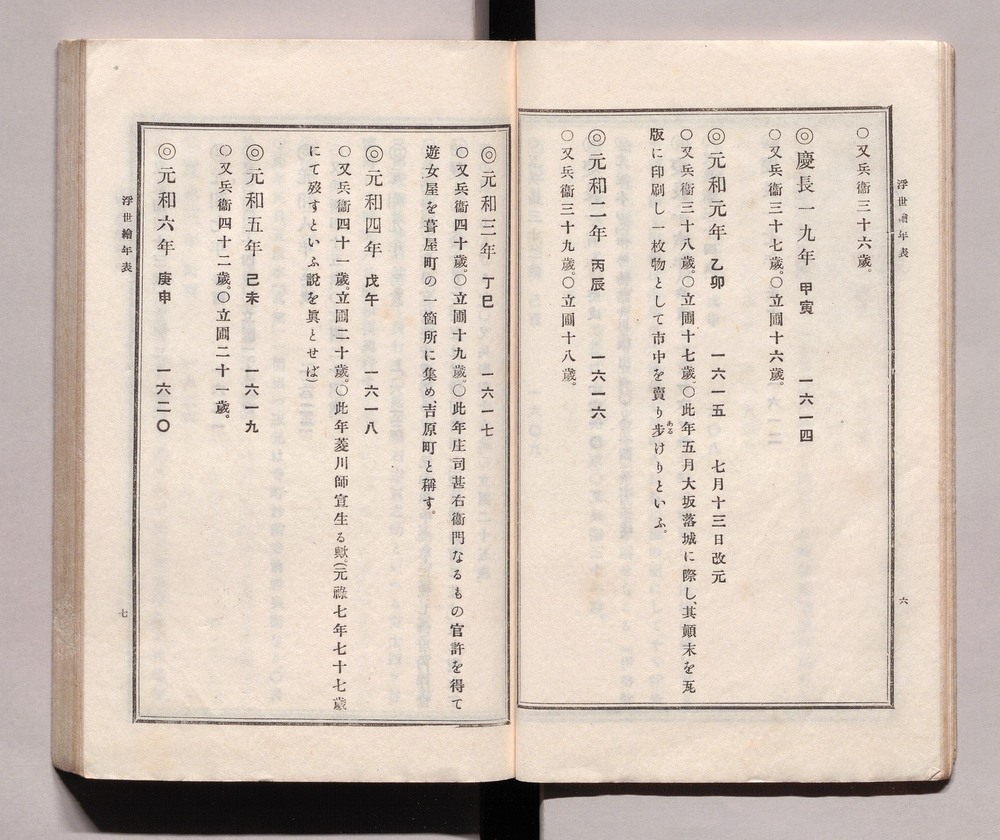 浮世繪年表
六
〇又兵衞三十六歳。
◎慶長一九年 甲寅 一六一四
〇又兵衞三十七歳。〇立圃十六歳。
◎元和元年 乙卯 一六一五 七月十三日改元
〇又兵衞三十八歳。〇立圃十七歳。〇此年五月大坂落城に際し、其顚末を瓦
版に印刷し一枚物として市中を賣り步けりといふ。
ある
◎元和二年 丙辰 一六一六
〇又兵衞三十九歳。〇立圃十八歳。
◎元和三年 丁巳 一六一七
〇又兵衞四十歳。〇立圃十九歳。〇此年庄司甚右衞門なるもの官許を得て
遊女屋を葺屋町の一箇所に集め、吉原町と稱す。
◎元和四年 戊午 一六一八
〇又兵衞四十一歳。立圃二十歳。〇此年菱川師宣生る歟。(元祿七年七十七歳
にて歿すといふ說を眞とせば)
◎元和五年 己未 一六一九
〇又兵衞四十二歳。〇立圃二十一歳。
◎元和六年 庚申 一六二〇
浮世繪年表
七